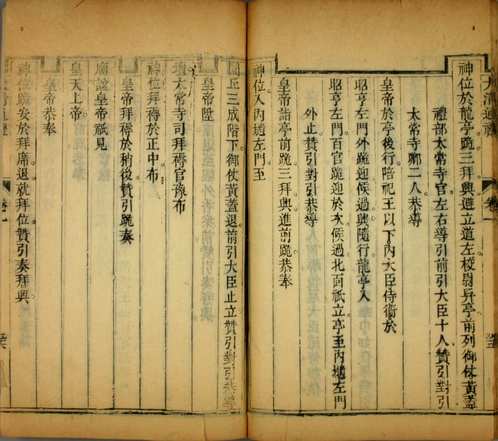 大清通禮
卷一
神位於龍亭跪三拜興退立道左校尉舁亭前列御仗黃蓋
禮部太常寺官左右導引前引大臣十人贊引對引
太常寺卿二人恭導
皇帝於亭後行陪祀王以下內大臣侍衛於
昭亨左門外跪迎候過興隨行龍亭入
昭亨左門百官跪迎於次候過北面祇立亭至內壝左門
外止贊引對引恭導
皇帝詣亭前跪三拜興進前跪恭奉
神位入內壝左門至
圜丘三成階下御仗黃蓋退前引大臣止立贊引對引恭導
皇帝陞
壇太常寺司拜褥官豫布
神位拜褥於正中布
皇帝拜褥於稍後贊引跪奏
廟謚皇帝祇見
皇天上帝
皇帝恭奉
神位奠安於拜席退就拜位贊引奏拜興
卷一